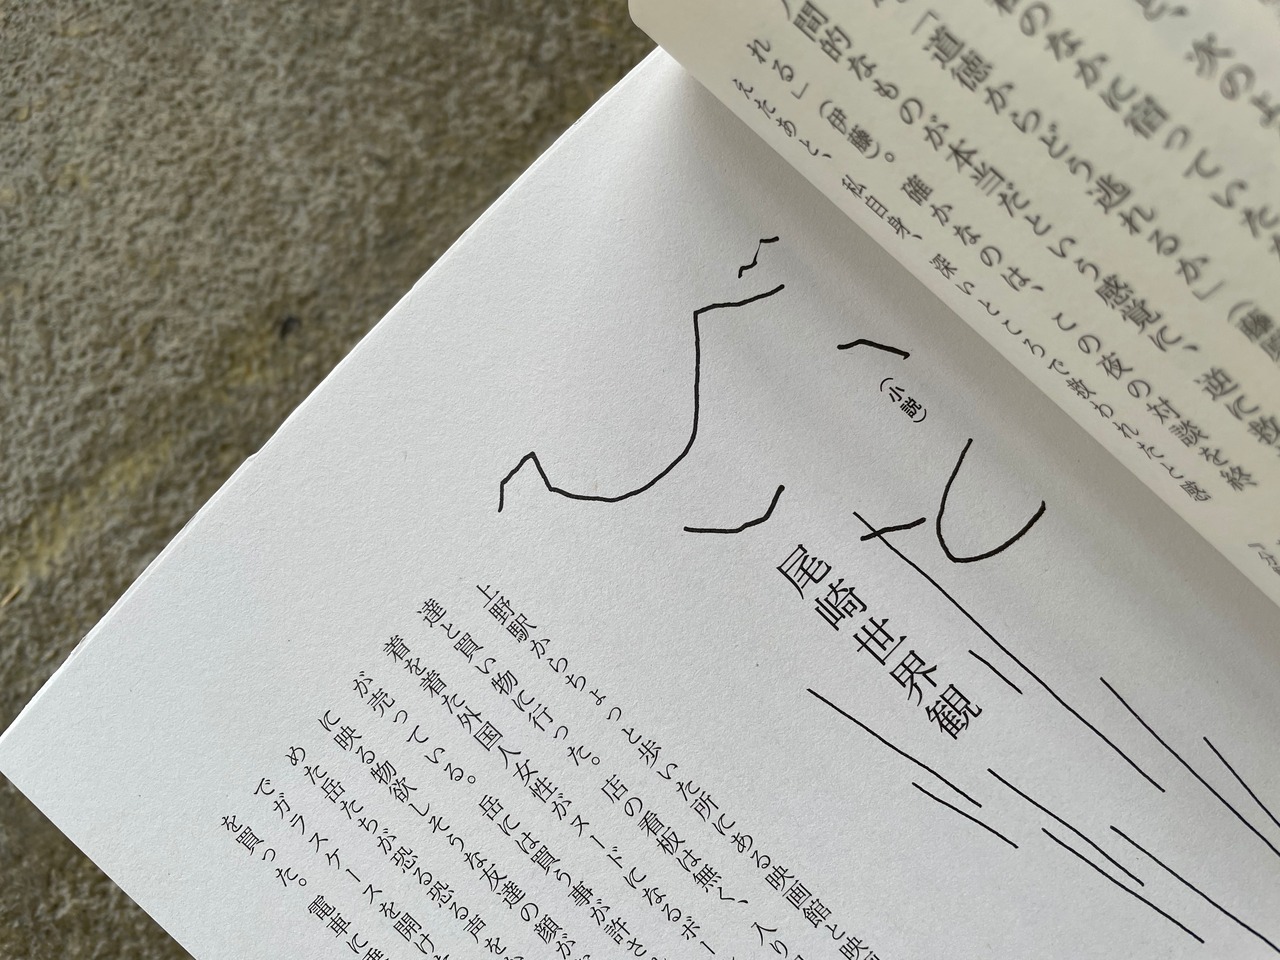 次のよ
のなかに宿っていた
「道徳からどう逃れるか」（藤
間的なものが本当だという感覚に、逆に救
れる」（伊藤）。確かなのは、この夜の対談を終
えたあと、私自身、深いところで救われたと感
（小説）
尾崎世界観
上野駅からちょっと歩いた所にある映画館と映
達と買い物に行った。店の看板は無く、入り
着を着た外国人女性がヌードになるボー
が売っている。岳には買う事が許さ
に映る物欲しそうな友達の顔が
めた岳たちが恐る恐る声を
でガラスケースを開け
を買った。
電車に